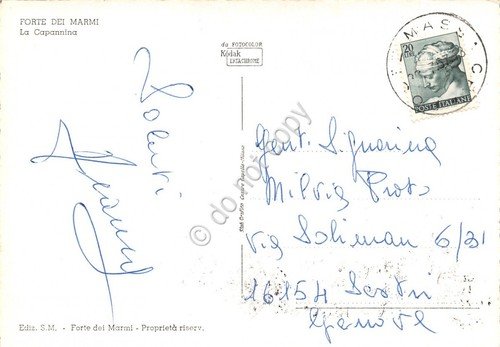 FORTE DEI MARMI
La Capannina
da FOTOCOLOR
Kodak
EKTACHROME
MASS
20
POSTE ITALIANE
Saluti
Gent. Signorina
Milvia Proto
Via Soliman 6/31
16154 Sestri
Genova
© do not copy
Ediz. S.M. - Forte dei Marmi - Proprietà riserv.